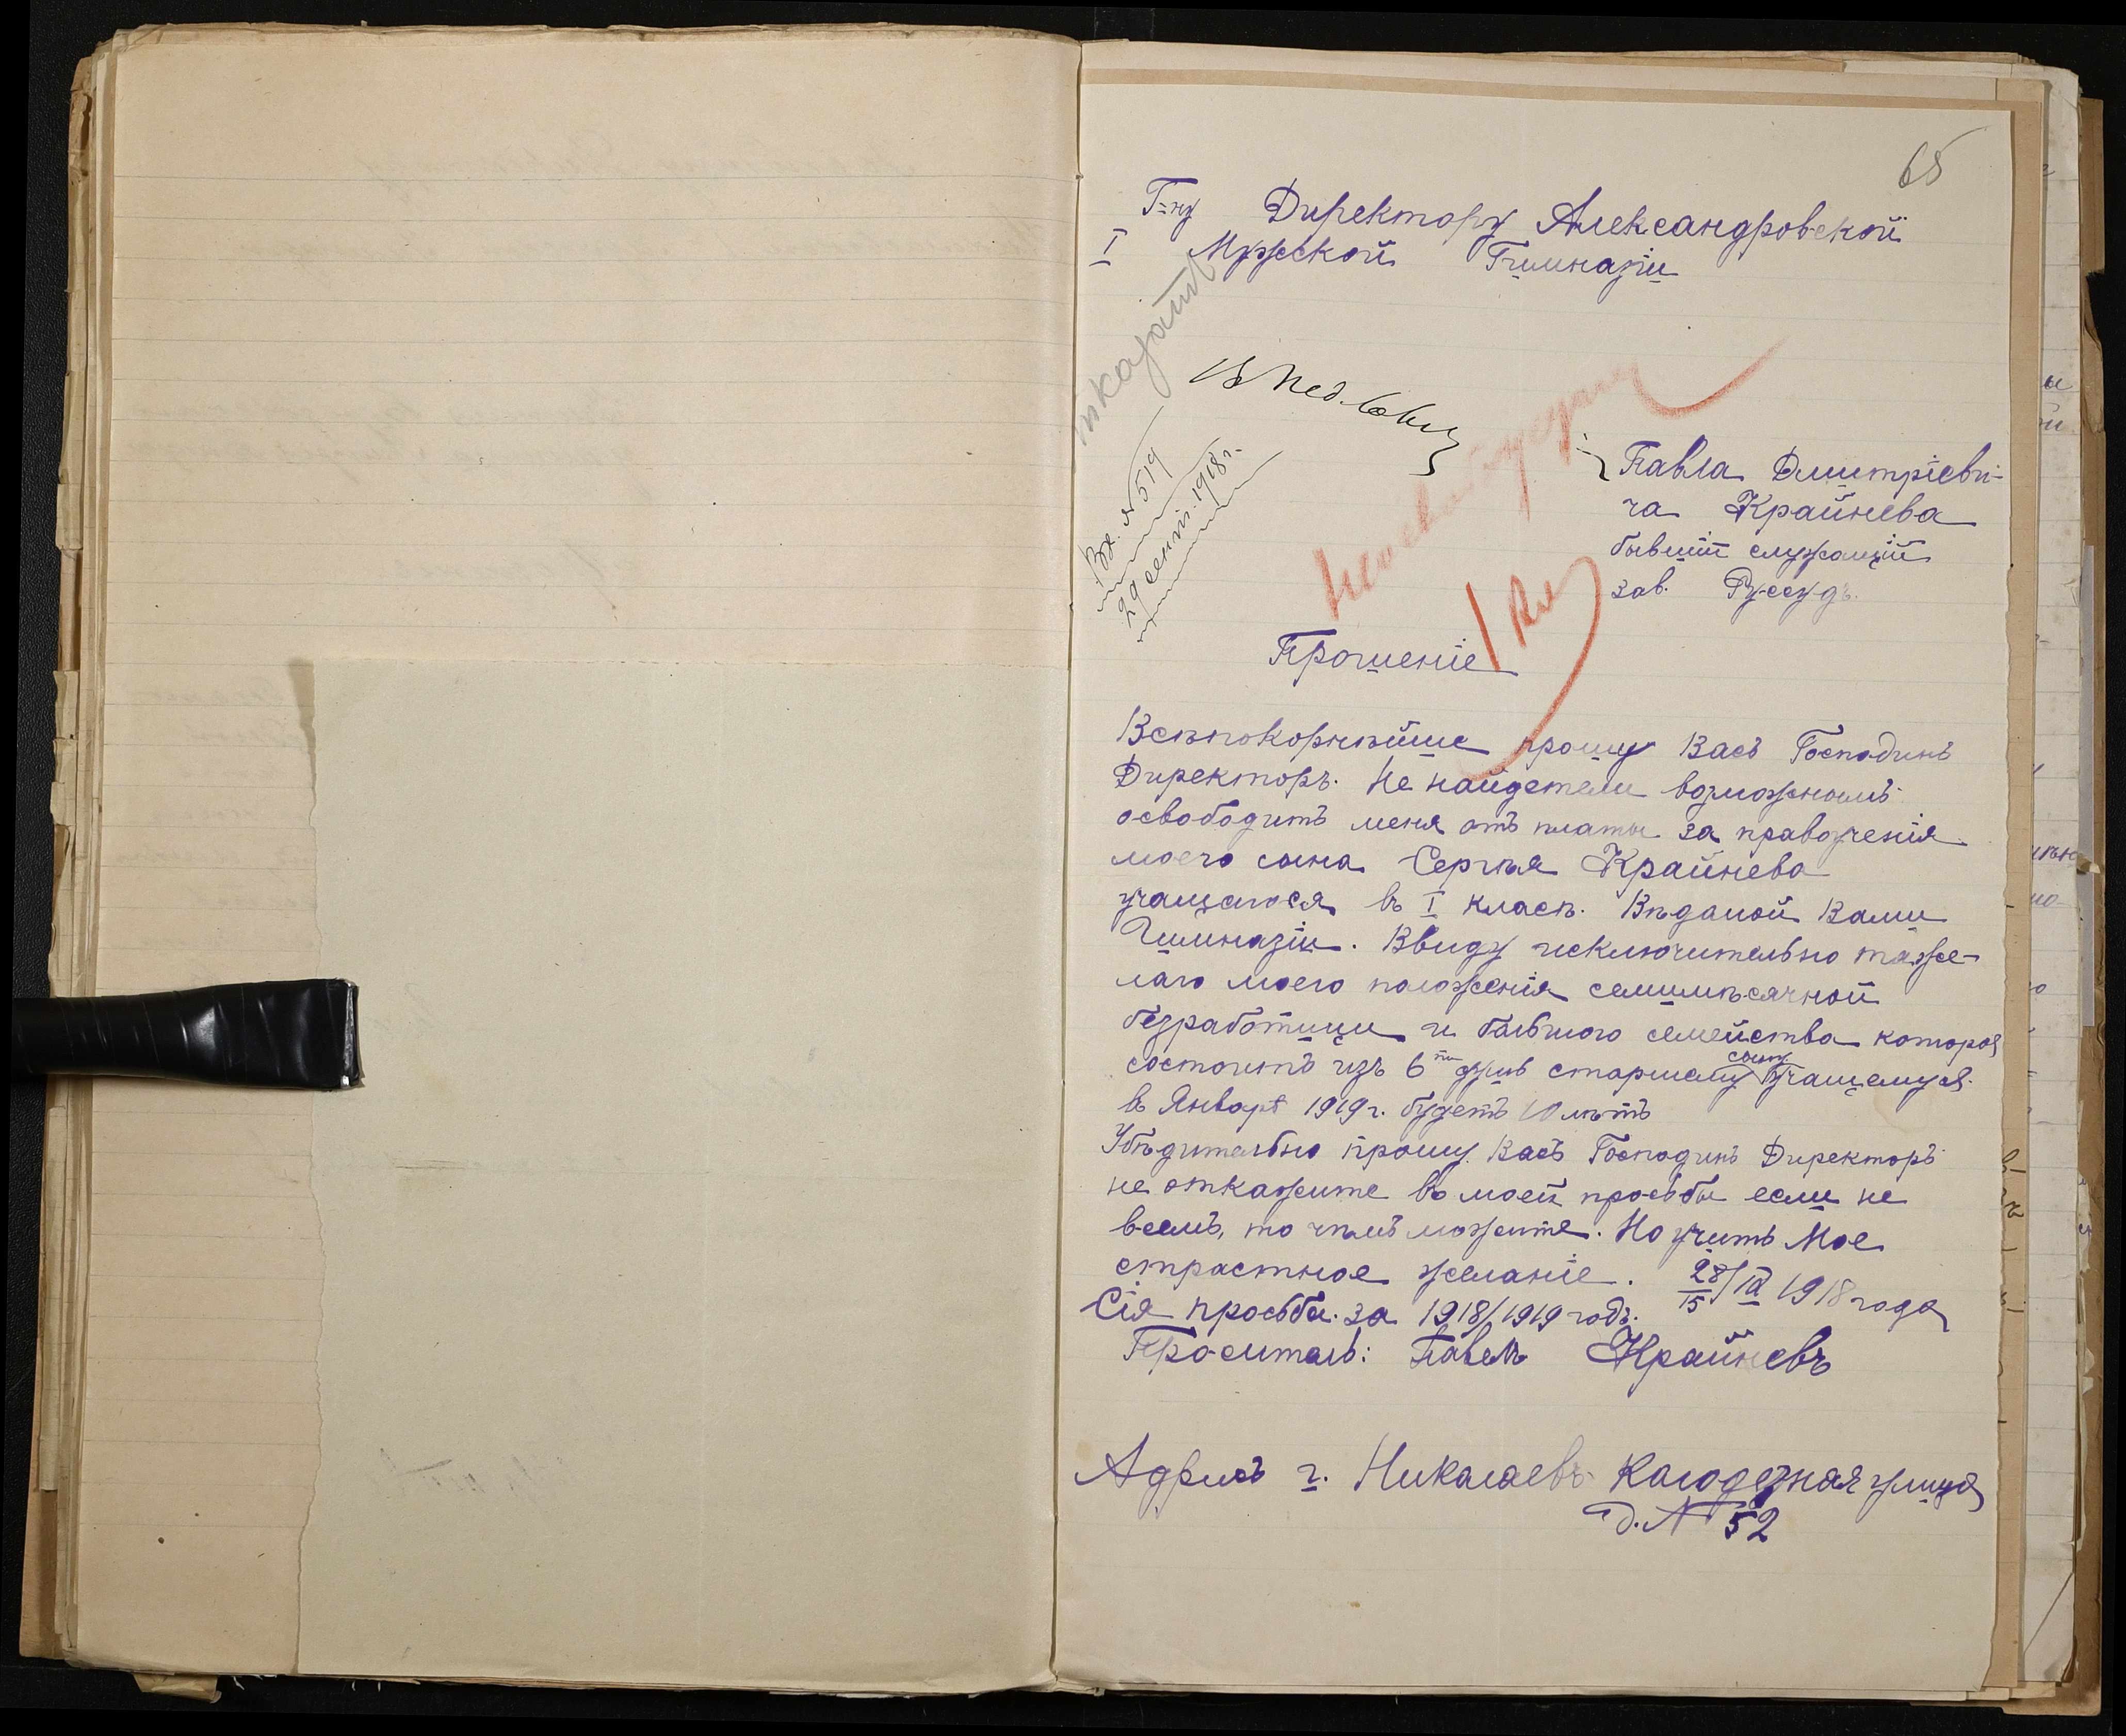 65
Г=ну Директору Александровской
I Мужской Гимназіи
Отказать
В Пед. Совѣтъ
Вх. № 519
29 сентяб. 1918 г.
Павла Дмитріеви-
ча Крайнева
бывшій служащій
зав. Руссудъ.
Прошеніе
Всѣпокорнѣйше прошу Васъ Господинъ
Директоръ. Не найдетели возможнымъ
освободить меня отъ платы за правоученія
моего сына Сергѣя Крайнева
учащагося въ I класѣ. Вѣдамой Вами
Гимназіи. Ввиду исключительно тяже-
лаго моего положенія семимѣсячной
безработицы и бальшого семейства котороя
состоитъ изъ 6ти душъ старшему сыну учащемуся
въ Январѣ 1919 г. будетъ 10 лѣтъ
Убѣдительно прошу Васъ Господинъ Директоръ
не откажите во моей прозьбы если не
всемъ, то чѣмъ можите. Но учить Мое
страстное желаніе. 28/15 IX 1918 года
Сія прозьба за 1918/1919 годъ.
Проситель: Павелъ Крайневъ
Адресъ г. Николаевъ Калодезная улица
д. № 52